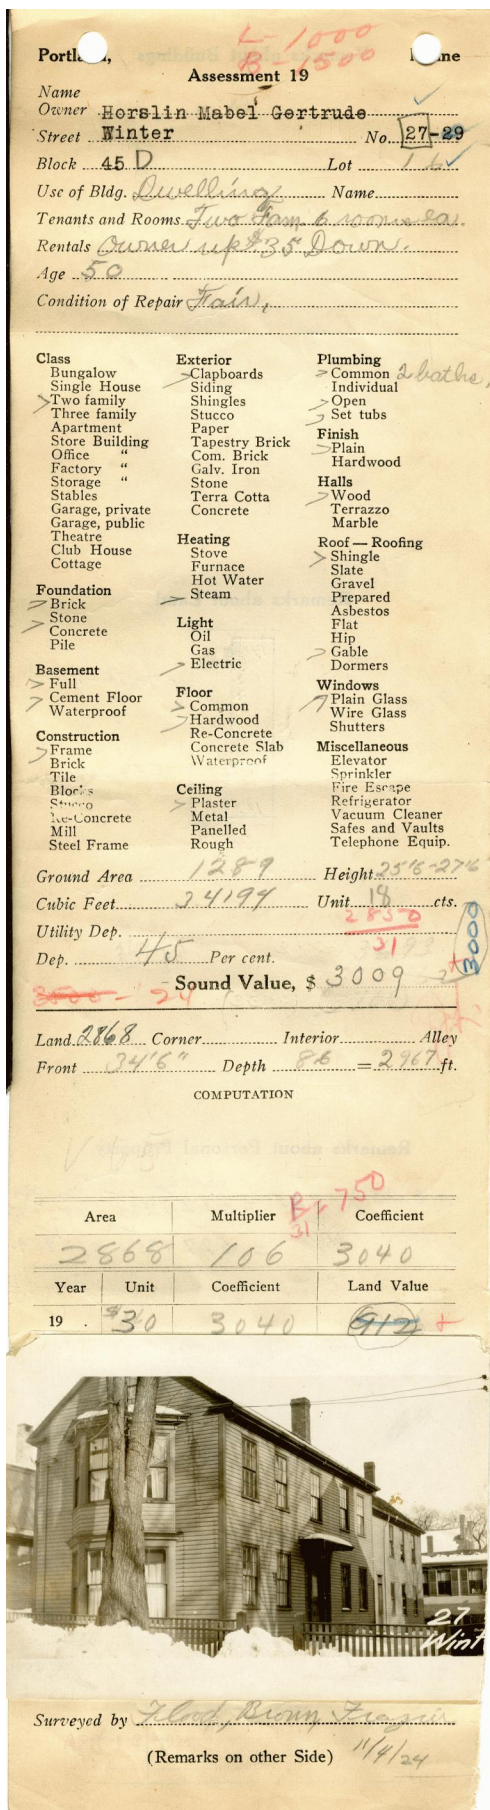 L-1000
Portland, Maine
B-1500
Assessment 19
Name
Owner Horslin Mabel Gertrude
Street Winter No. 27-29
Block 45 D Lot 16
Use of Bldg. Dwelling Name
Tenants and Rooms Two Fam 6 rooms ea.
Rentals Owner up $35 Down.
Age 50
Condition of Repair Fair,
Class
Bungalow
Single House
Two family
Three family
Apartment
Store Building
Office "
Factory "
Storage "
Stables
Garage, private
Garage, public
Theatre
Club House
Cottage
Foundation
Brick
Stone
Concrete
Pile
Basement
Full
Cement Floor
Waterproof
Construction
Frame
Brick
Tile
Blocks
Stucco
Re-Concrete
Mill
Steel Frame
Exterior
Clapboards
Siding
Shingles
Stucco
Paper
Tapestry Brick
Com. Brick
Galv. Iron
Stone
Terra Cotta
Concrete
Heating
Stove
Furnace
Hot Water
Steam
Light
Oil
Gas
Electric
Floor
Common
Hardwood
Re-Concrete
Concrete Slab
Waterproof
Ceiling
Plaster
Metal
Panelled
Rough
Plumbing
Common 2 baths,
Individual
Open
Set tubs
Finish
Plain
Hardwood
Halls
Wood
Terrazzo
Marble
Roof — Roofing
Shingle
Slate
Gravel
Prepared
Asbestos
Flat
Hip
Gable
Dormers
Windows
Plain Glass
Wire Glass
Shutters
Miscellaneous
Elevator
Sprinkler
Fire Escape
Refrigerator
Vacuum Cleaner
Safes and Vaults
Telephone Equip.
Ground Area 1289 Height 25'6-27'6
Cubic Feet 34194 Unit 18 cts.
2850
Utility Dep.
31
3000
Dep. 45 Per cent.
Sound Value, $ 3009
3000 - 24
Land 2868 Corner Interior Alley
Front 34'6" Depth 86 = 2967 ft.
COMPUTATION
B-750
31
Area Multiplier Coefficient
2868 106 3040
Year Unit Coefficient Land Value
19 . $30 3040 912
27
Wint
Surveyed by Flood, Brown, Frazier
(Remarks on other Side) 11/4/24